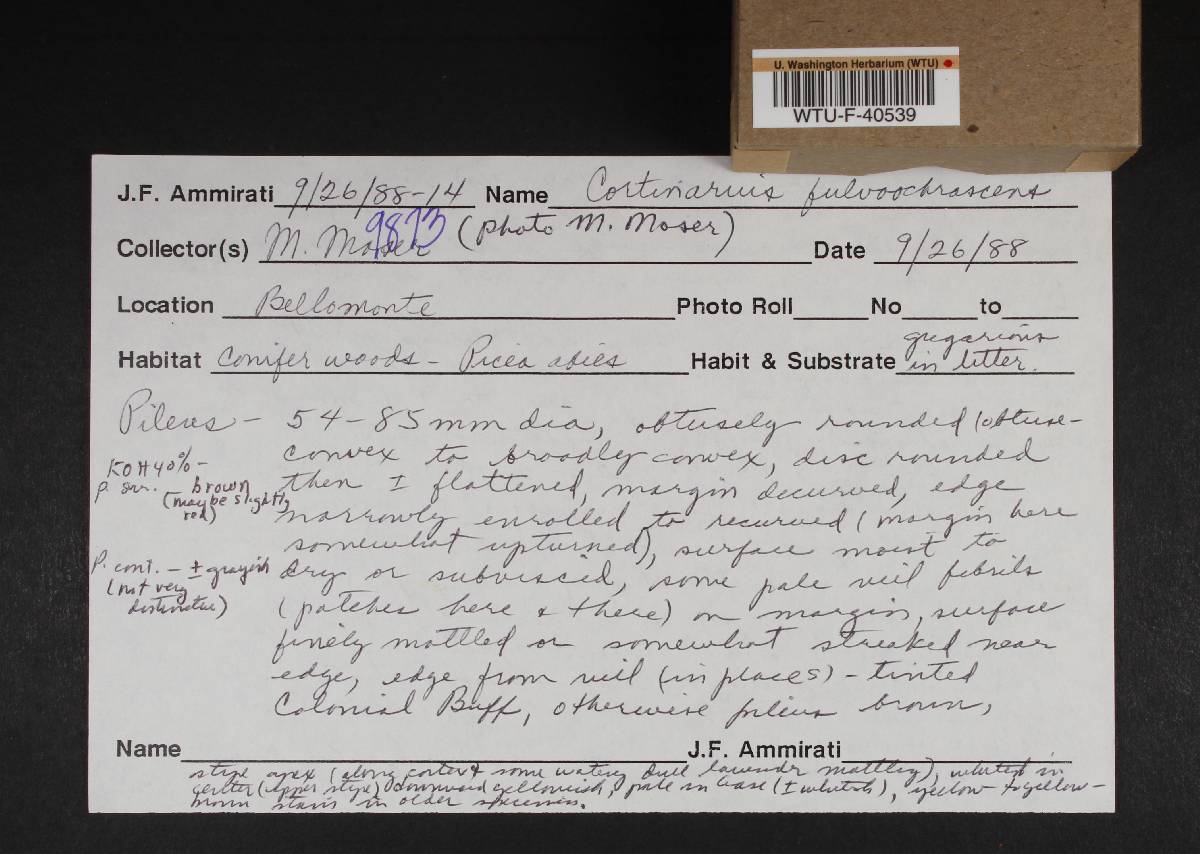 U. Washington Herbarium (WTU)
WTU-F-40539
J.F. Ammirati 9/26/88-14 Name Cortinarius fulvoochrascens
9873
Collector(s) M. Moser (photo M. Moser) Date 9/26/88
Location Bellomonte Photo Roll No to
Habitat Conifer woods - Picea abies Habit & Substrate gregarious
in litter.
Pileus - 54-85mm dia, obtusely rounded (obtuse-
convex to broadly convex, disc rounded
then ± flattened, margin decurved, edge
narrowly enrolled to recurved (margin here
somewhat upturned), surface moist to
dry or subviscid, some pale veil fibrils
(patches here & there) on margin, surface
finely mottled or somewhat streaked near
edge, edge from veil (in places) - tinted
Colonial Buff, otherwise pileus brown,
KOH 40% -
P. sur. - brown
(maybe slightly
red)
P. cont. - ± grayish
(not very
distinctive)
Name J.F. Ammirati
stipe apex (along cortex & some watery dull lavender mottling), whitish in
center (upper stipe) downward yellowish, pale in base (± whitish), yellow to yellow-
brown stains in older specimens.